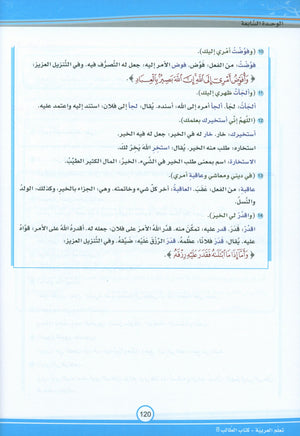 الوحدة السابعة
١٠ (وفوّضتُ أمري إليك).
فوّضتُ: من الفعل: فوّض. فوض الأمر إليه: جعل له التصرُّف فيه. وفي التنزيل العزيز:
﴿وَأُفَوِّضُ أَمْرِي إِلَى اللَّهِ إِنَّ اللَّهَ بَصِيرٌ بِالْعِبَادِ﴾.
١١ (وألجأتُ ظهري إليك).
ألجأتُ: لجأ. ألجأ أمره إلى الله: أسنده. يُقال: لجأ إلى فلان: استند إليه واعتمد عليه.
١٢ (اللهمّ إنّي أستخيرك بعلمك).
أستخيرك: خار. خار له في الخير: جعل له فيه الخير.
استخاره: طلب منه الخير. يُقال: استخر اللهَ يَخِرْ لك.
الاستخارة: اسم بمعنى طلب الخير في الشّيء. الخيرُ: المال الكثير الطيّبُ.
١٣ (في ديني ومعاشي وعاقبة أمري).
عاقبة: من الفعل: عقَبَ. العاقبةُ: آخر كلّ شيء وخاتمته. وهي: الجزاء بالخير، وكذلك: الولدُ
والنّسلُ.
١٤ (واقدُرْ لي الخير).
اقدُرْ: قَدَرَ. قدر عليه: تمكّن منه. قدَرَ اللهُ الأمر على فلان: جعله له. أقدرهُ اللهُ على الأمر: قوّاهُ
عليه. يُقال: قدَرَ فلانًا: عظّمهُ. قدَر الرّزقَ عليْهِ: ضيّقهُ. وفي التّنزيل العزيز:
﴿وَأَمَّا إِذَا مَا ابْتَلَاهُ فَقَدَرَ عَلَيْهِ رِزْقَهُ﴾.
120
تعلّم العربيّة - كتاب الطالب 8